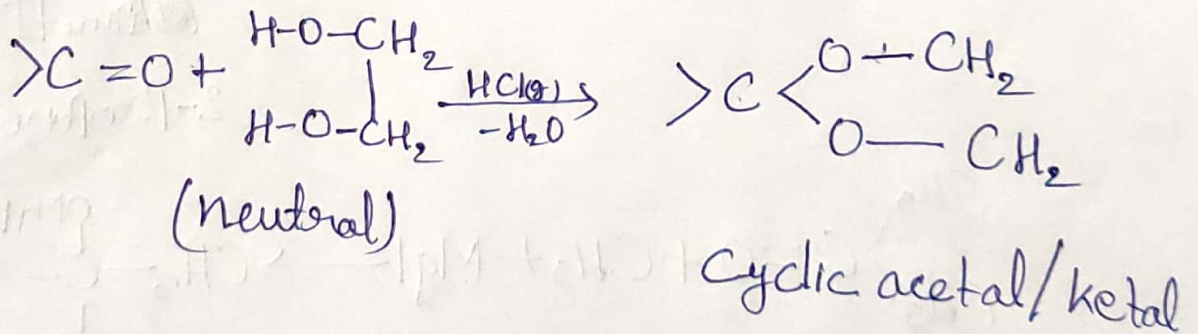 >C=O + H-O-CH₂
H-O-CH₂
HCl(g)
-H₂O
>C<
O-CH₂
O-CH₂
(neutral)
Cyclic acetal/ketal